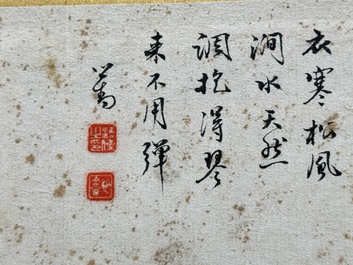 衣寒松風
澗水天然
調抱得琴
来不用弾